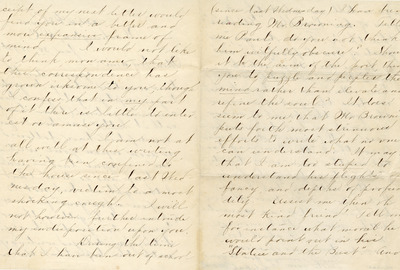 ceipt of my next letter would
find you in a better and
more expansive frame of
mind. I would not like
to think mon ami, that
this correspondence has
grown irksome to you, though
I confess that in my part
of it there is little to enter-
est or amuse you.
I am not at
all well at this writing
having been confined to
the house since last
nesday, victim to a most
shocking cough. I will
not however further intrude
my indisposition upon you.
During the time
that I have been out of school
(since last Wednesday) I have been
reading Mr Browning. Tell
me Paul, do you not think
him wilfully obscure? 
it be the aim of the poet think
you to puzzle and perplex the
mind rather than elevate and
refine the soul? It does
seem to me that Mr Browning
puts forth most strenuous
efforts to write what no one
can understand. It may be
that I am too stupid to
understand his flights of
fancy and depths of profun-
dity. Assist me then oh
most kind friend. Tell me
for instance what moral he
would point out in his
"Statue and the Bust" and